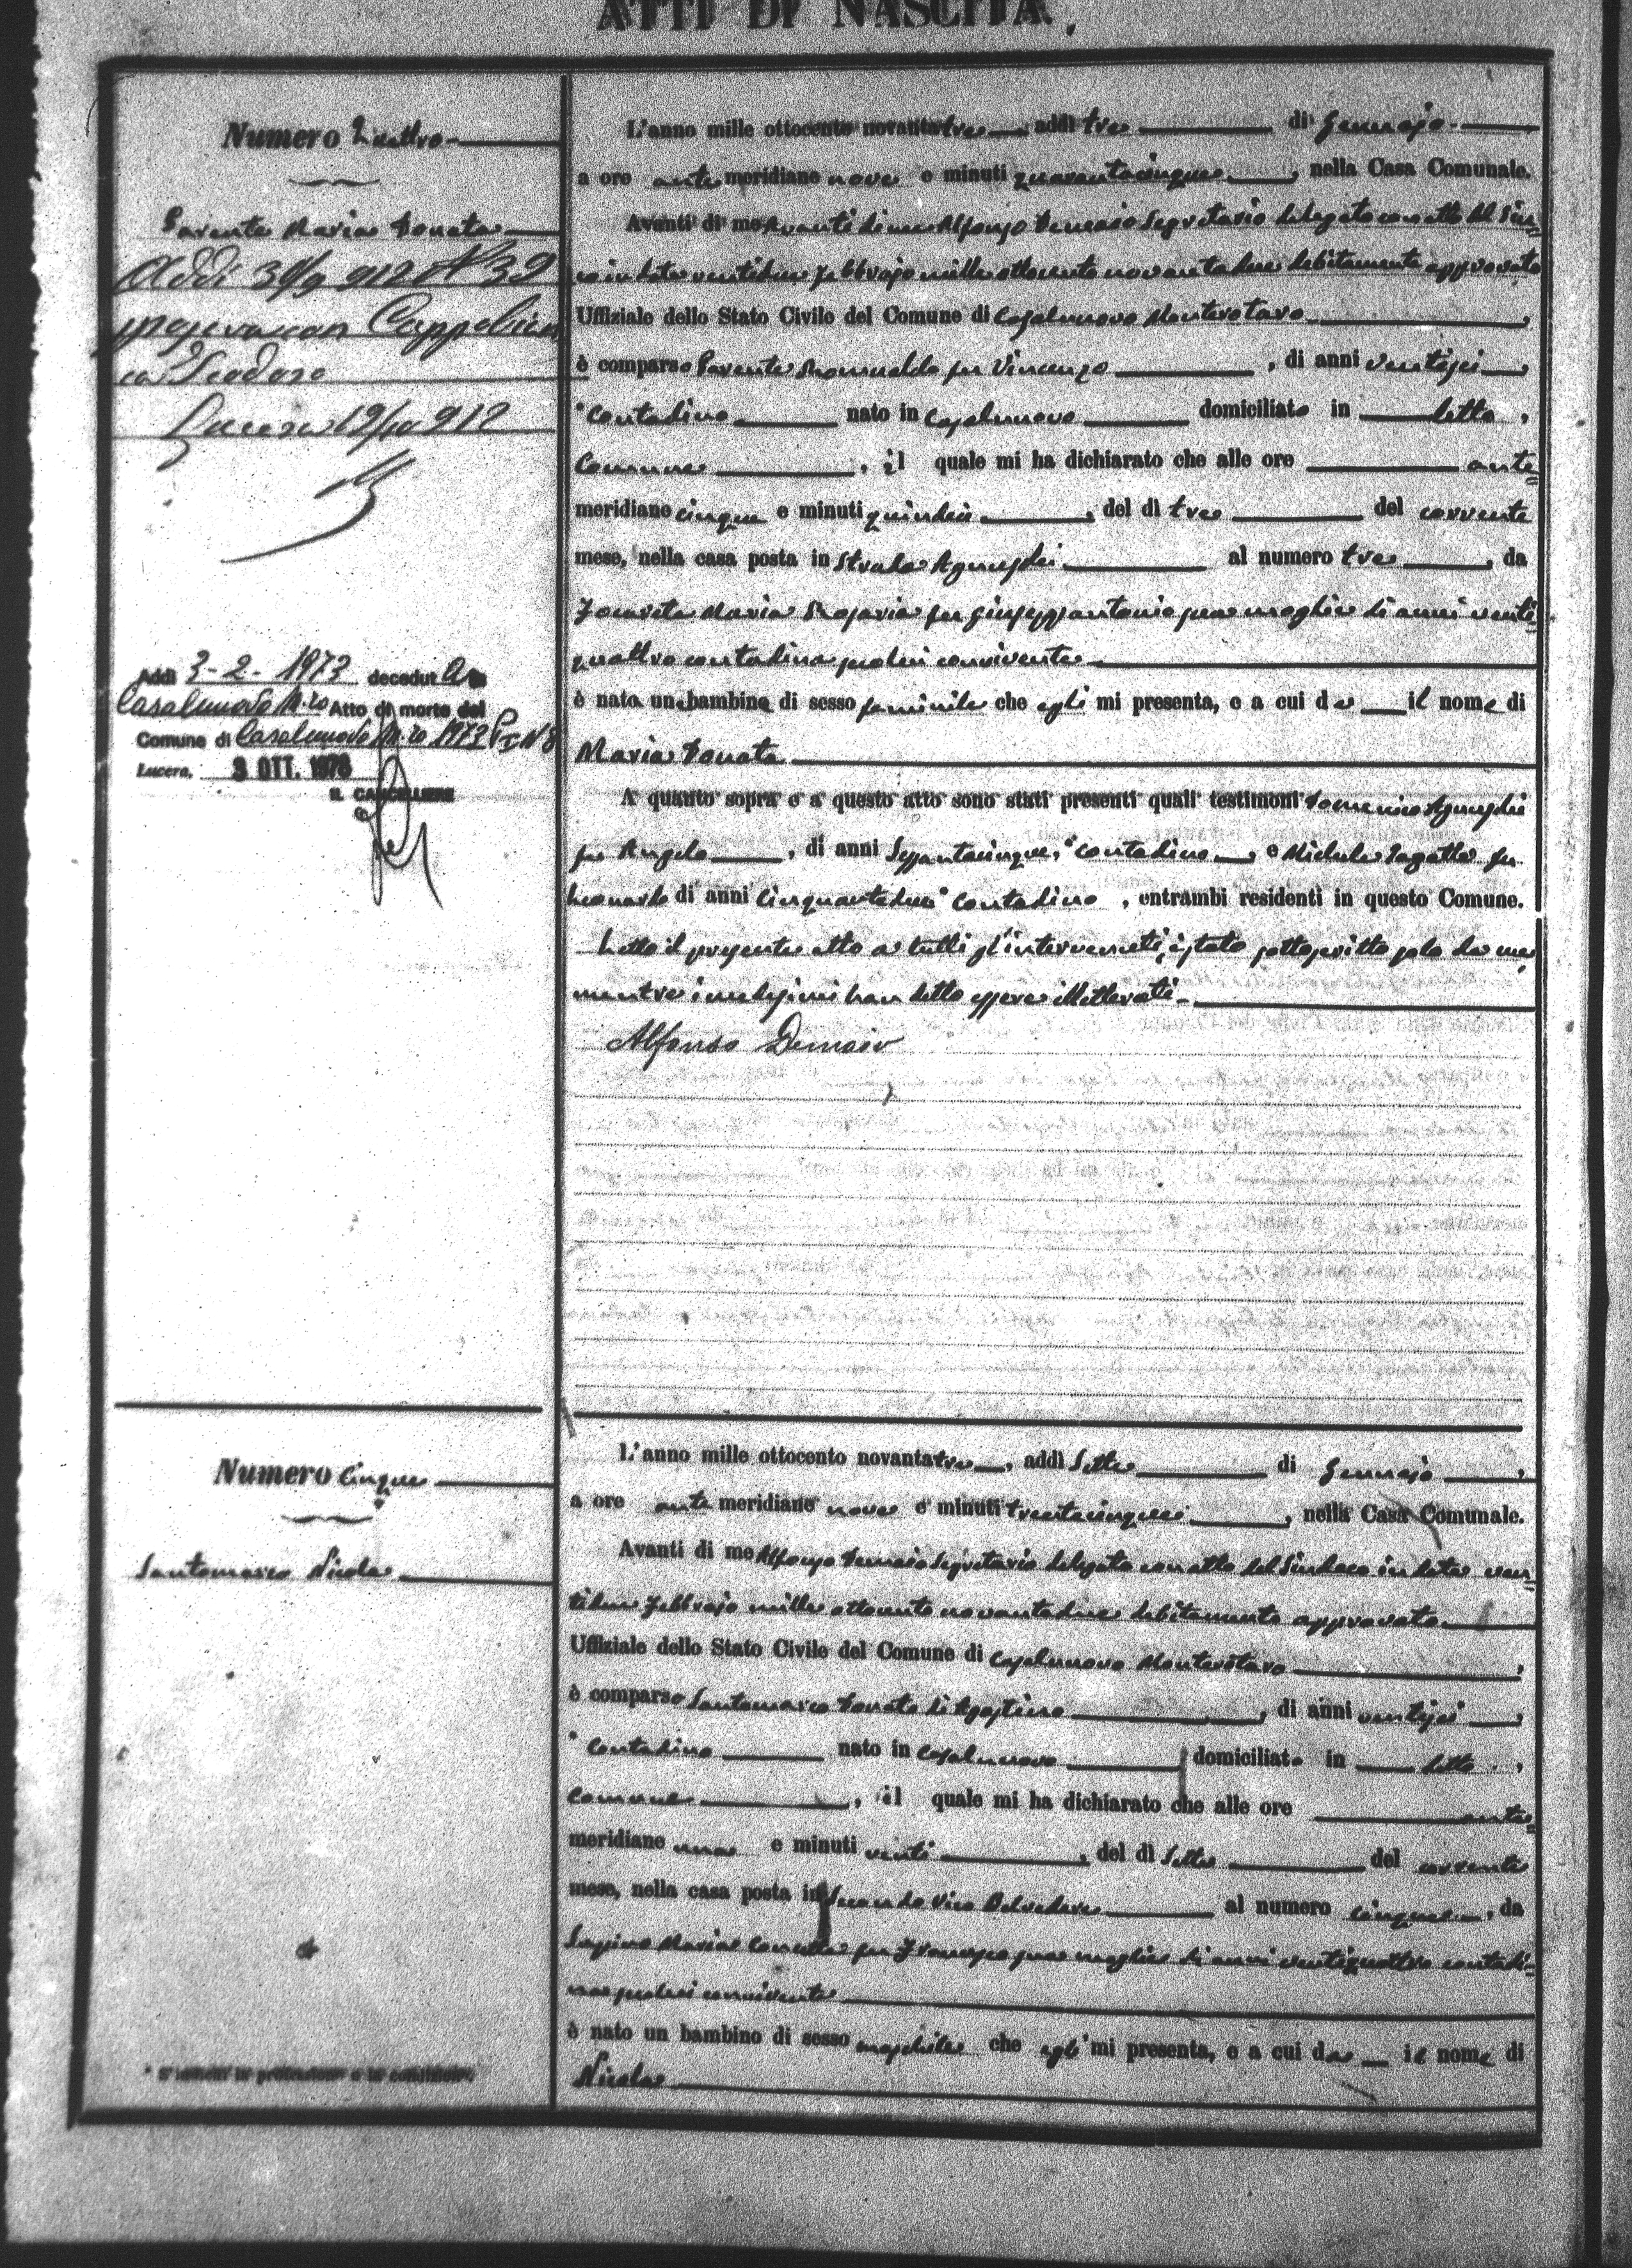 ATTI DI NASCITA.
Numero Quattro
Parente Maria Donata
Addi 30/9 912 N 32
sposava con Cappellucci
Teodoro
Lucera 19/10 912
Addì 3-2-1973 decedut a in
Casalnuovo M.ro Atto di morte del
Comune di Casalnuovo M.ro 1973 P I N 3
Lucera, 3 OTT. 1973
IL CANCELLIERE
L'anno mille ottocento novantatre addì tre di Gennajo
a ore antemeridiane nove e minuti quarantacinque, nella Casa Comunale.
Avanti di me Avanti di me Alfonso Demaio Segretario delegato con atto del Sin=
co in data ventidue Febbrajo mille ottocento novantadue debitamente approvato
Uffiziale dello Stato Civile del Comune di Casalnuovo Monterotaro,
è comparso Parente Romualdo fu Vincenzo, di anni ventisei,
contadino nato in Casalnuovo domiciliato in detto,
Comune, il quale mi ha dichiarato che alle ore ante=
meridiane cinque e minuti quindici, del dì tre del corrente
mese, nella casa posta in Strada Agnusdei al numero tre, da
Maria Rosaria fu Giuseppantonio sua moglie di anni venti=
quattro contadina seco lui convivente
è nato un bambina di sesso feminile che egli mi presenta, e a cui da il nome di
Maria Donata
A quanto sopra e a questo atto sono stati presenti quali testimoni Domenico Agnusdei
fu Angelo, di anni Sessantacinque, contadino, e Michele fu
Leonardo di anni Cinquantadue Contadino, entrambi residenti in questo Comune.
Letto il presente atto a tutti gl'intervenuti, è stato sottoscritto solo da me,
mentre i medesimi han detto essere illetterati.
Alfonso Demaio
Numero Cinque
Santomarco Nicola
L'anno mille ottocento novantatre, addì Sette di Gennajo,
a ore ante meridiane nove e minuti trentacinque, nella Casa Comunale.
Avanti di me Alfonso Demaio Segretario delegato con atto del Sindaco in data ven=
tidue Febbrajo mille ottocento novantadue debitamente approvato
Uffiziale dello Stato Civile del Comune di Casalnuovo Monterotaro,
è comparso Santomarco Donato di Agostino, di anni ventisei,
Contadino nato in Casalnuovo domiciliato in detto,
Comune, il quale mi ha dichiarato che alle ore ante=
meridiane una e minuti venti, del dì Sette del corrente
mese, nella casa posta in Secondo Vico Belvedere al numero cinque, da
Maria Concetta fu Francesco sua moglie di anni ventiquattro contadi=
na seco lui convivente
è nato un bambino di sesso maschile che egli mi presenta, e a cui da il nome di
Nicola